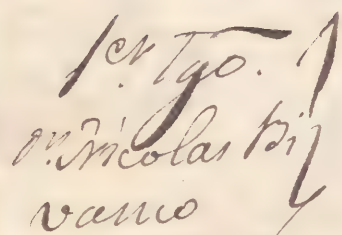 1er. Tgo.
Dn. Nicolas Bi
vanco